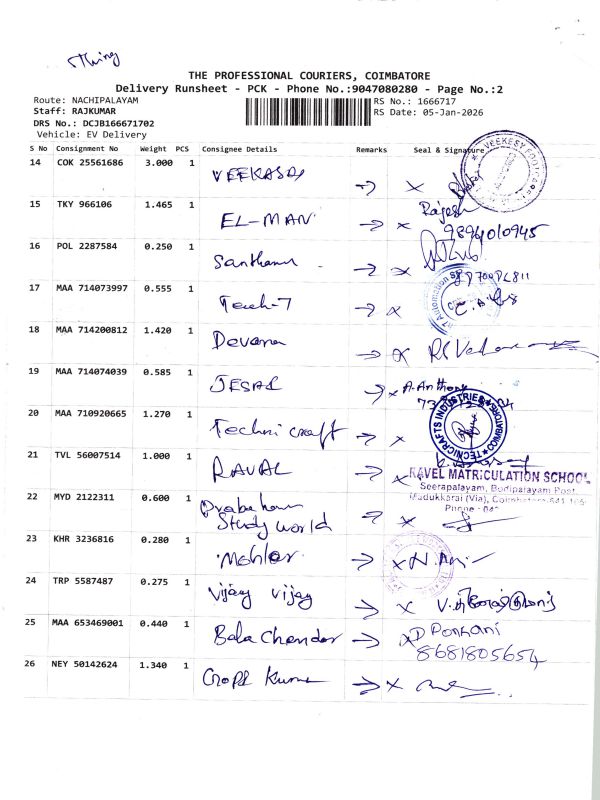 THE PROFESSIONAL COURIERS, COIMBATORE
Delivery Runsheet - PCK - Phone No.:9047080280 - Page No.:2
Route: NACHIPALAYAM
Staff: RAJKUMAR
DRS No.: DCJB166671702
Vehicle: EV Delivery
RS No.: 1666717
RS Date: 05-Jan-2026
S No Consignment No Weight PCS Consignee Details Remarks Seal & Signature
14 COK 25561686 3.000 1 VEEKASY
15 TKY 966106 1.465 1 EL-MAN Rajesh
9894010945
16 POL 2287584 0.250 1 Santhanu
17 MAA 714073997 0.555 1 Teach-7
18 MAA 714200812 1.420 1 Devana
19 MAA 714074039 0.585 1
20 MAA 710920665 1.270 1 Technicraft
TECNICRAFTS INDUSTRIES COIMBATORE
21 TVL 56007514 1.000 1 RAVAL
RAVEL MATRICULATION SCHOOL
Seerapalayam, Bodipalayam Post,
Madukkarai (Via), Coimbatore-641 105
Phone
22 MYD 2122311 0.600 1 Prabaharn
Study world
23 KHR 3236816 0.280 1
24 TRP 5587487 0.275 1 Vijay Vijay
25 MAA 653469001 0.440 1 Bala Chander D Ponkani
8681805654
26 NEY 50142624 1.340 1